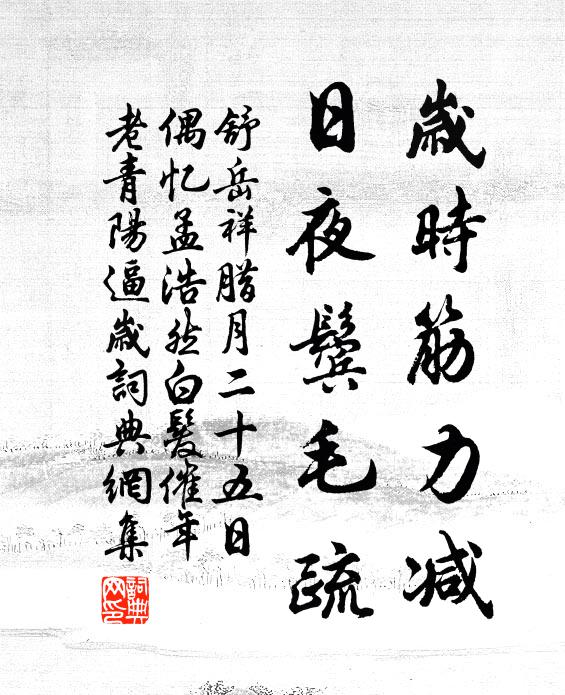 歲時筋力減
日夜鬢毛疏
舒岳祥臘月二十五日
偶忆孟浩然白髮催年
老青陽逼歲詞典網集
詞典
网印